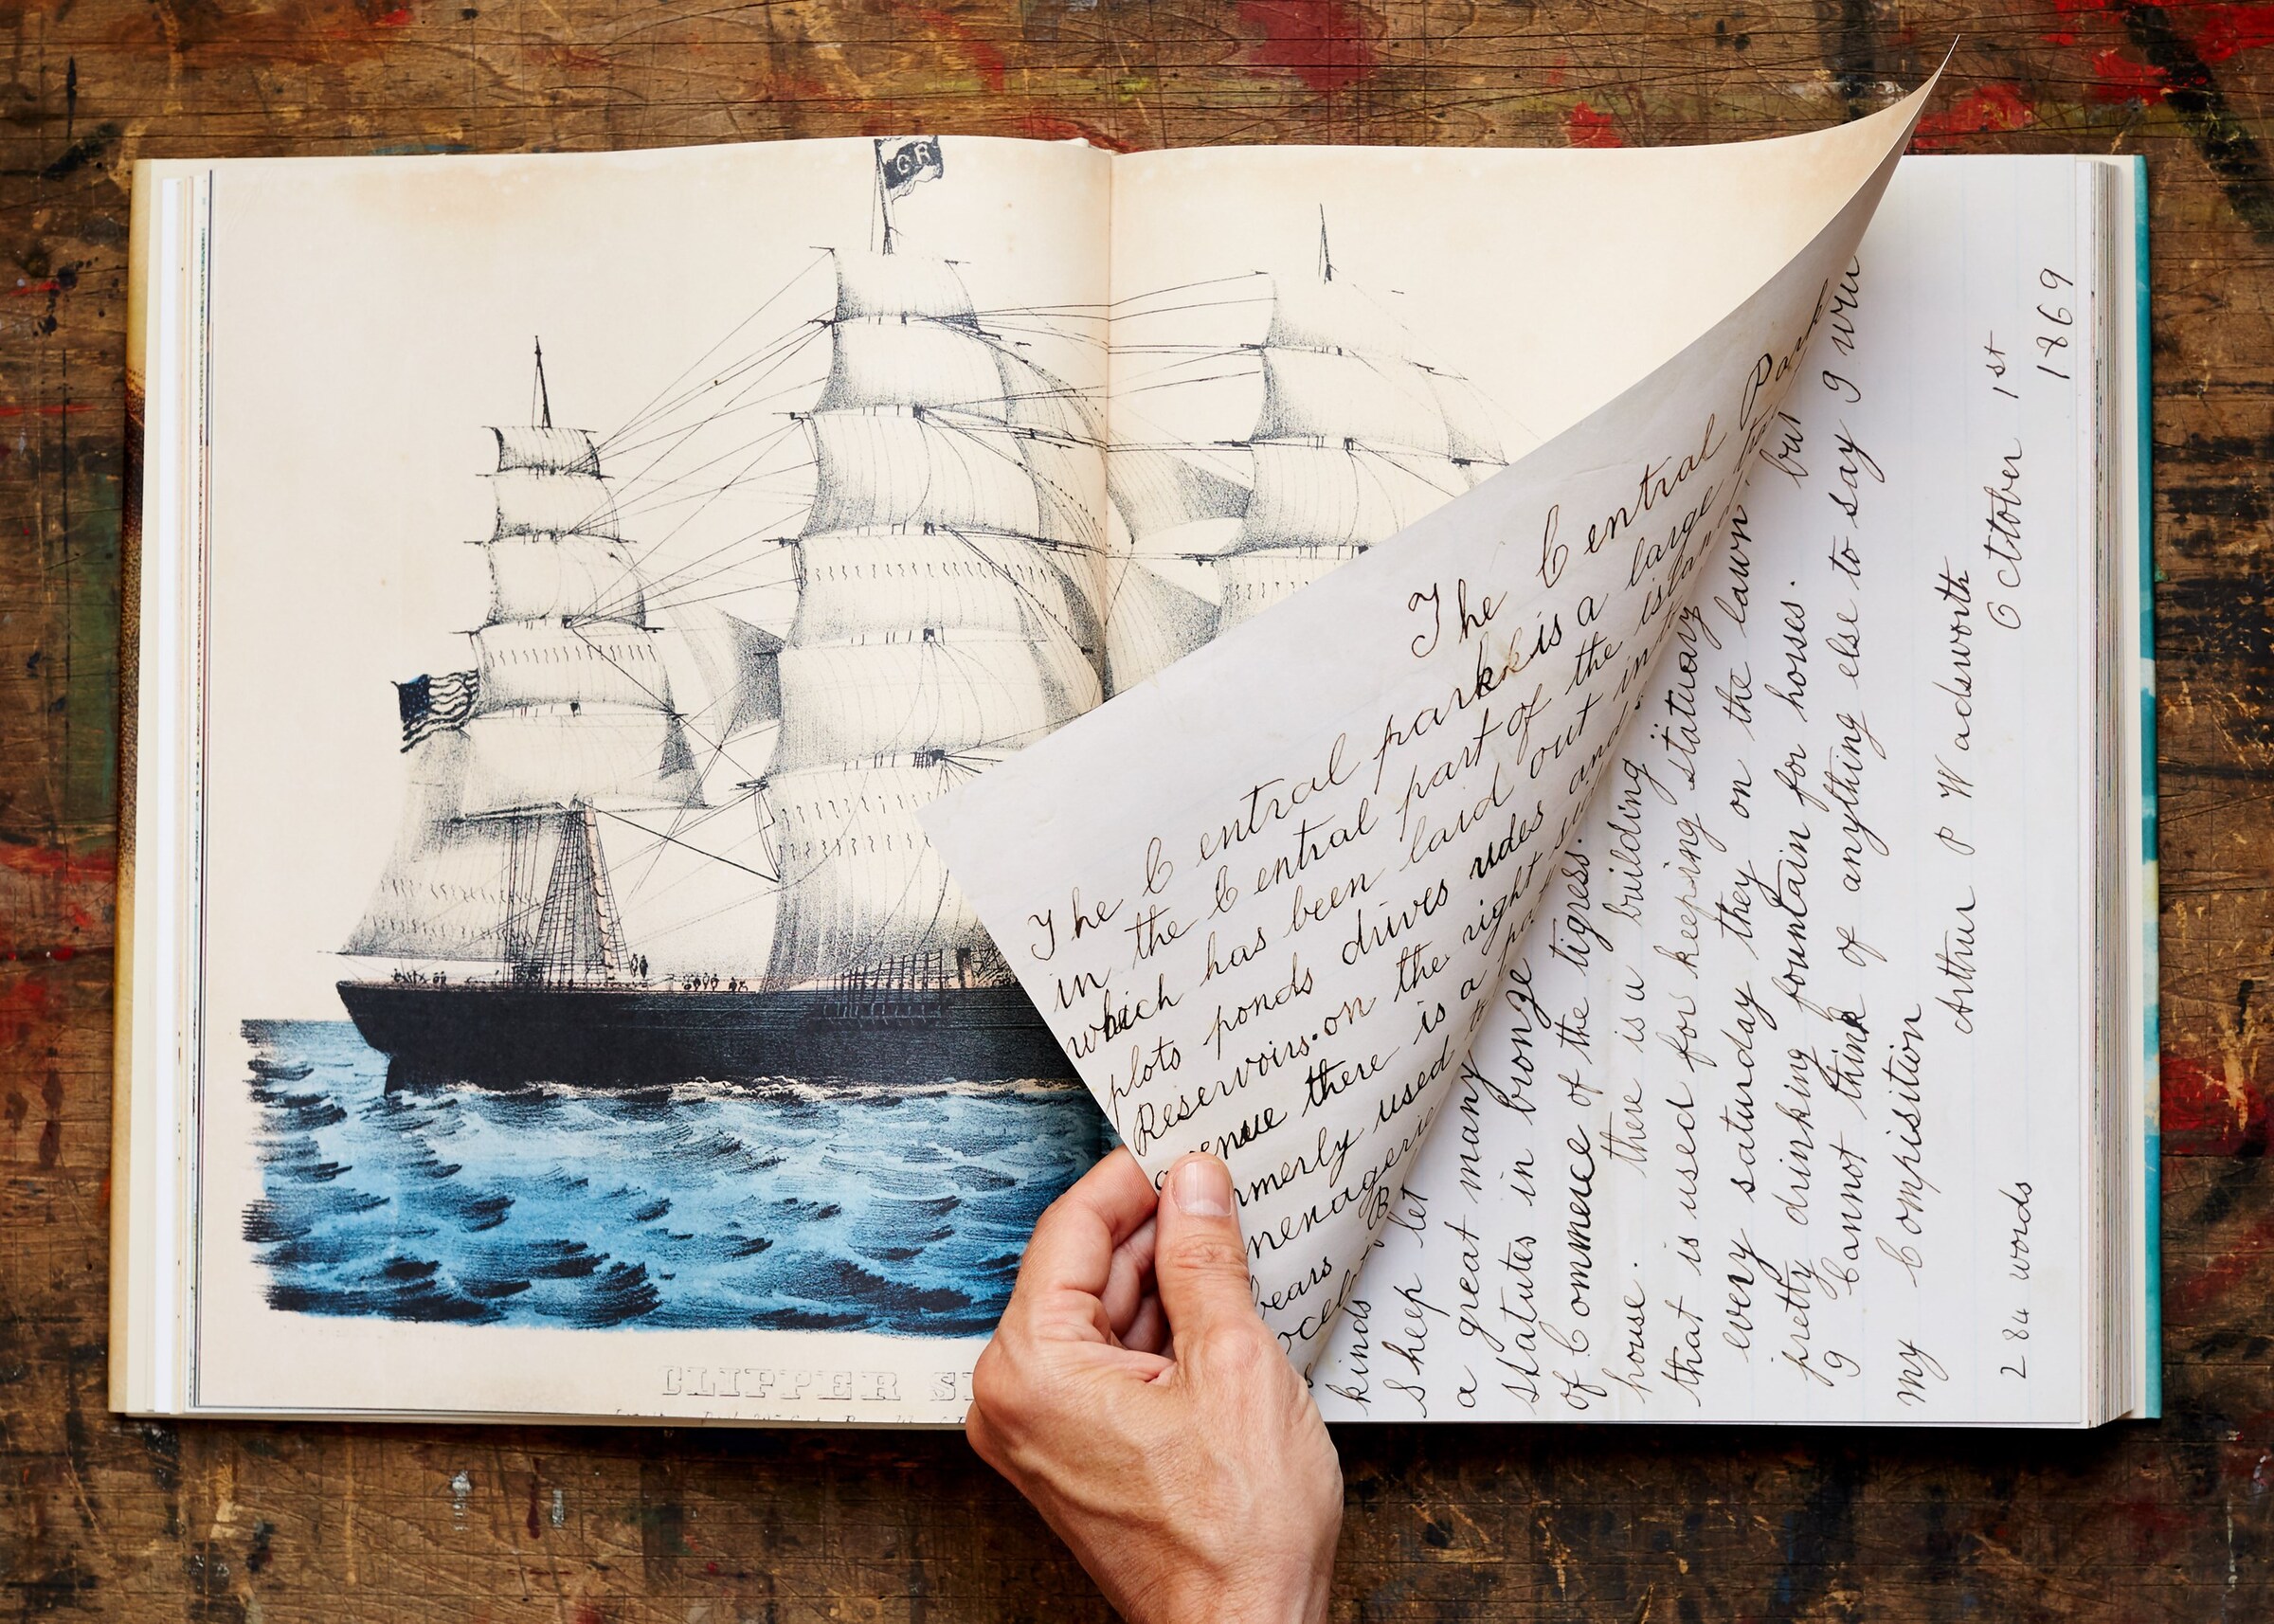 GR
CLIPPER
The Central Park
The Central park is a large
in the Central part of the island
which has been laid out in
plots ponds drives rides and
Reservoirs. on the right
avenue there is a
used
menagerie
bears
kinds
Sheep let
a great many
statutes in bronze
of Commence of the tigress.
there is a building
house.
that is used for keeping statuary
every saturday they on the lawn but
pretty drinking fountain for horses.
I Cannot think of anything else to say I
my Compisition
Arthur P Wadsworth
284 words
October 1st
1869